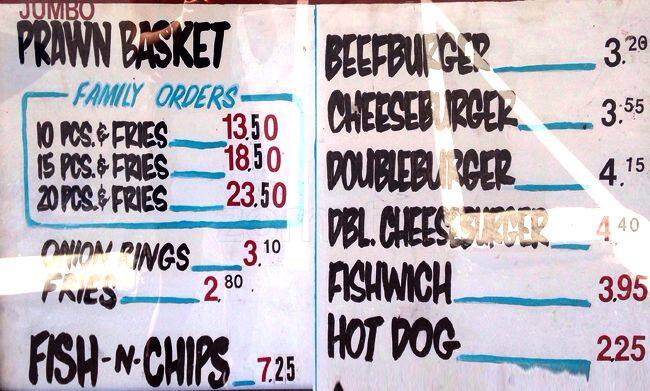 JUMBO
PRAWN BASKET
FAMILY ORDERS
10 PCS. & FRIES 13.50
15 PCS. & FRIES 18.50
20 PCS. & FRIES 23.50
ONION RINGS 3.10
FRIES 2.80
FISH-N-CHIPS 7.25
BEEFBURGER 3.20
CHEESEBURGER 3.55
DOUBLEBURGER 4.15
DBL. CHEESEBURGER 4.40
FISHWICH 3.95
HOT DOG 2.25